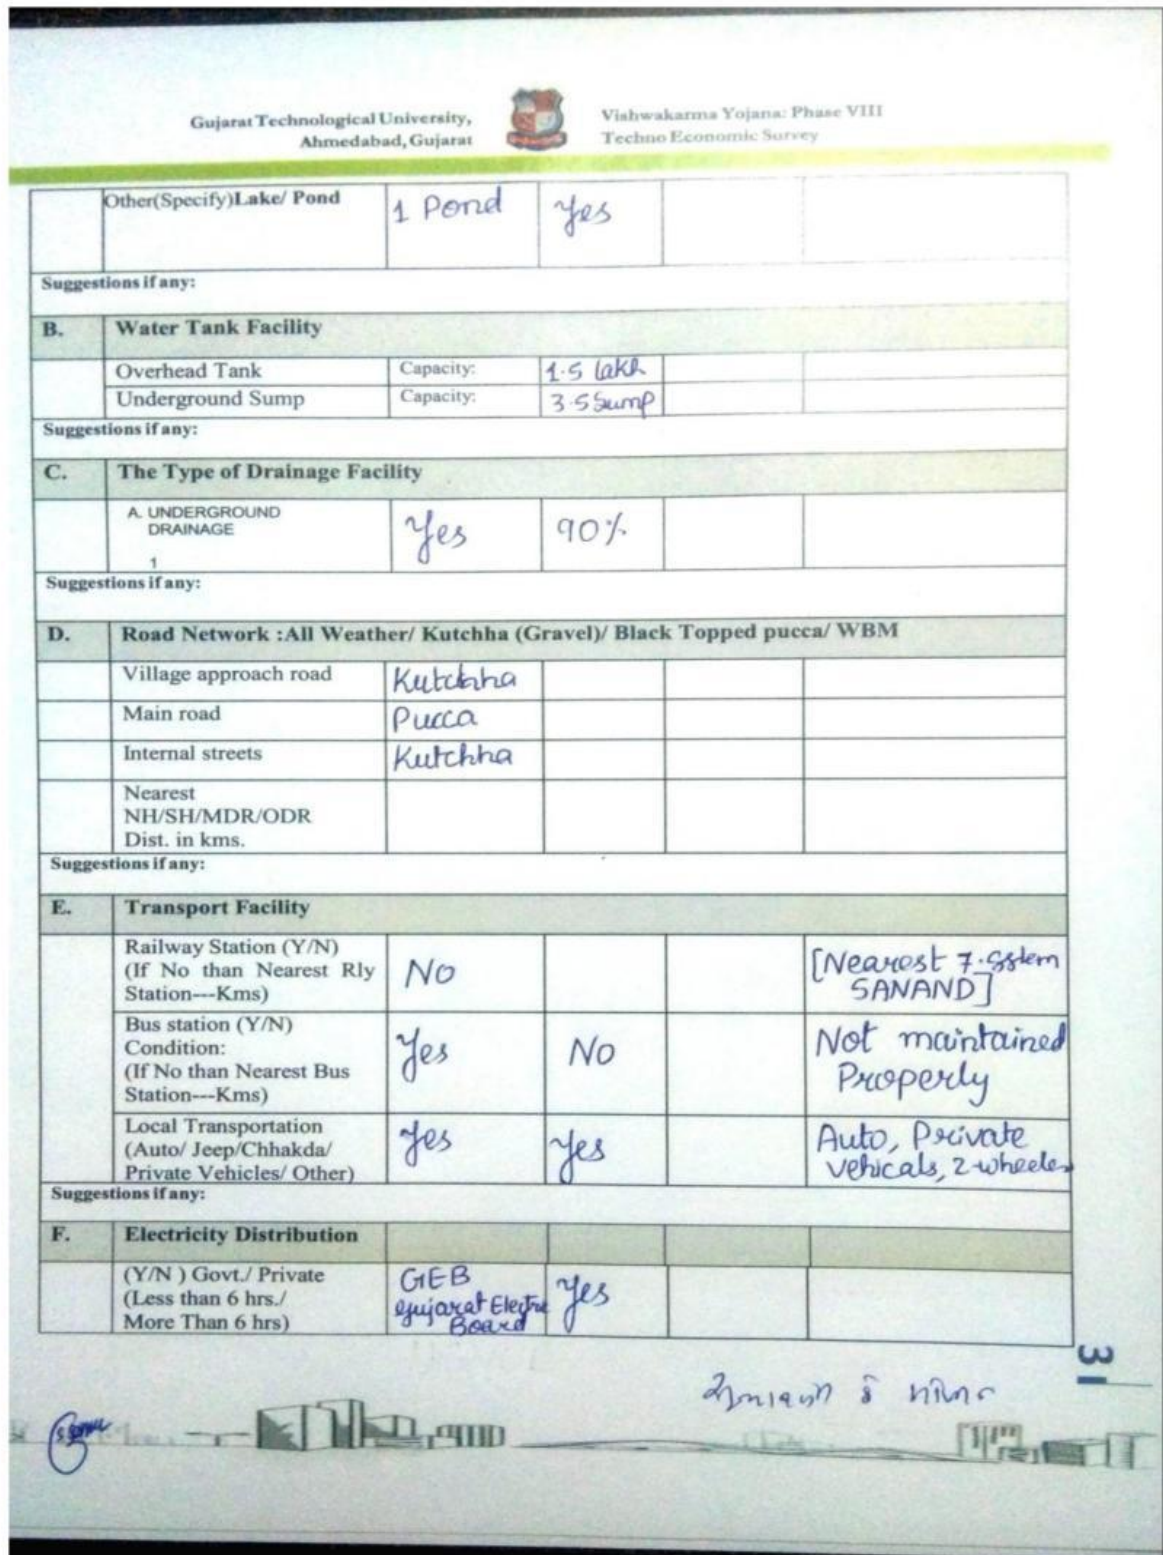 Gujarat Technological University,
Ahmedabad, Gujarat
Vishwakarma Yojana: Phase VIII
Techno Economic Survey
Other(Specify)Lake/ Pond 1 Pond Yes
Suggestions if any:
B. Water Tank Facility
Overhead Tank Capacity: 1.5 lakh
Underground Sump Capacity: 3.5 Sump
Suggestions if any:
C. The Type of Drainage Facility
A. UNDERGROUND
DRAINAGE
1
Yes 90%
Suggestions if any:
D. Road Network :All Weather/ Kutchha (Gravel)/ Black Topped pucca/ WBM
Village approach road Kutchha
Main road Pucca
Internal streets Kutchha
Nearest
NH/SH/MDR/ODR
Dist. in kms.
Suggestions if any:
E. Transport Facility
Railway Station (Y/N)
(If No than Nearest Rly
Station---Kms)
No
[Nearest
SANAND]
Bus station (Y/N)
Condition:
(If No than Nearest Bus
Station---Kms)
Yes No
Not maintained
Properly
Local Transportation
(Auto/ Jeep/Chhakda/
Private Vehicles/ Other)
Yes Yes
Auto, Private
vehicals, 2-wheeler
Suggestions if any:
F. Electricity Distribution
(Y/N ) Govt./ Private
(Less than 6 hrs./
More Than 6 hrs)
GEB
Gujarat Electric
Board
Yes
31